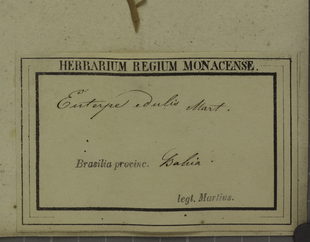 HERBARIUM REGIUM MONACENSE.
Euterpe edulis Mart.
Brasilia provinc. Bahia
legt. Martius.